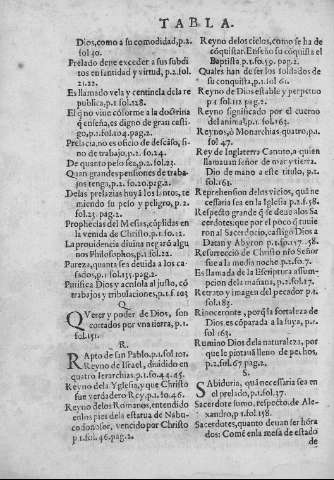 TABLA.
Dios, como a su comodidad, p.2.
fol 40.
Prelado deue exceder a sus subdi
tos en santidad y virtud, p.2.fol.
21.22.
Es llamado vela y centinela dela re
publica, p.1.fol.128.
El q̃ no viue cõforme a la doctrina
q̃ enseña, es digno de gran casti-
go, p.1.fol.104.pag.2.
Prelacia, no es oficio de descãso, si-
no de trabajo, p.2.fo.24.
De quanto peso sea, p.2.fol.23.
Quan grandes pensiones de traba-
jos tenga, p.2.fo.20.pag.2.
Delas prelazias huyã los Santos, te
miendo su peso y peligro, p.2.
fol.23. pag.2.
Prophecias del Mesias, cũplidas en
la venida de Christo. p.1.fo.12.
La prouidencia diuina negarõ algu
nos Philosophos, p.1.fol.22.
Pureza, quanta sea deuida a los ca-
sados, p.1.fol.135.pag.2.
Purifica Dios y acrisola al justo, cõ
trabajos y tribulaciones, p.1.f.103
Q
QVerer y poder de Dios, son
cortados por vna tierra, p.1.
fol.151.
R.
RApto de san Pablo, p.1.fol 101.
Reyno de Israel, diuidido en
quatro Ierarchias, p.1.fo.44.45.
Reyno dela Yglesia, y que Christo
fue verdadero Rey, p.1.fo.46.
Reyno delos Romanos, entendido
en los pies dela estatua de Nabu-
codonosor, vencido por Christo
p.1.fol.46.pag.2.
Reyno delos cielos, como se ha de
cõquistar. Enseño su cõquista el
Baptista p.1.fo.59. pag.2.
Quales han de ser los soldados de
su conquista, p.1.fol 61.
Reyno de Dios estable y perpetuo
p 1 fol 112 pag.2.
Reyno significado por el cuerno
del animal, p.1.fol.163.
Reynos, ò Monarchias quatro, p.1.
fol 47.
Rey de Inglaterra Canuto, a quien
llamauan señor de mar y tierra.
Dio de mano a este titulo, p.1.
fol.165.
Reprehension delos vicios, quã ne
cessaria sea en la Iglesia p.2.f.58.
Respecto grande q̃ se deue alos Sa
cerdotes, que por el poco q̃ tuuie
ron al Sacerdocio, castigo Dios a
Datan y Abyron p.1.fo.157.58.
Resurreciõ de Christo nr̃o Señor
fue a la media noche p.2.fo.7.
Es llamada de la Escriptura assum-
pcion dela mañana, p.2.fol.17.
Retrato y imagen del pecador p.1.
fol.183.
Rinoceronte, porq̃ la fortaleza de
Dios es cõparada a la suya, p.1.
fol 163.
Rumino Dios dela naturaleza, por
que le piotauã lleno de pechos,
p.2.fol.67 pag.2.
S.
SAbiduria, quã necessaria sea en
el prelado, p.1.fol.37.
Sacerdote sumo, respecto. de Ale-
xandro, p 1.fol.158.
Sacerdotes, quanto deuan ser hõra
dos: Comẽ enla mesa de estado
de